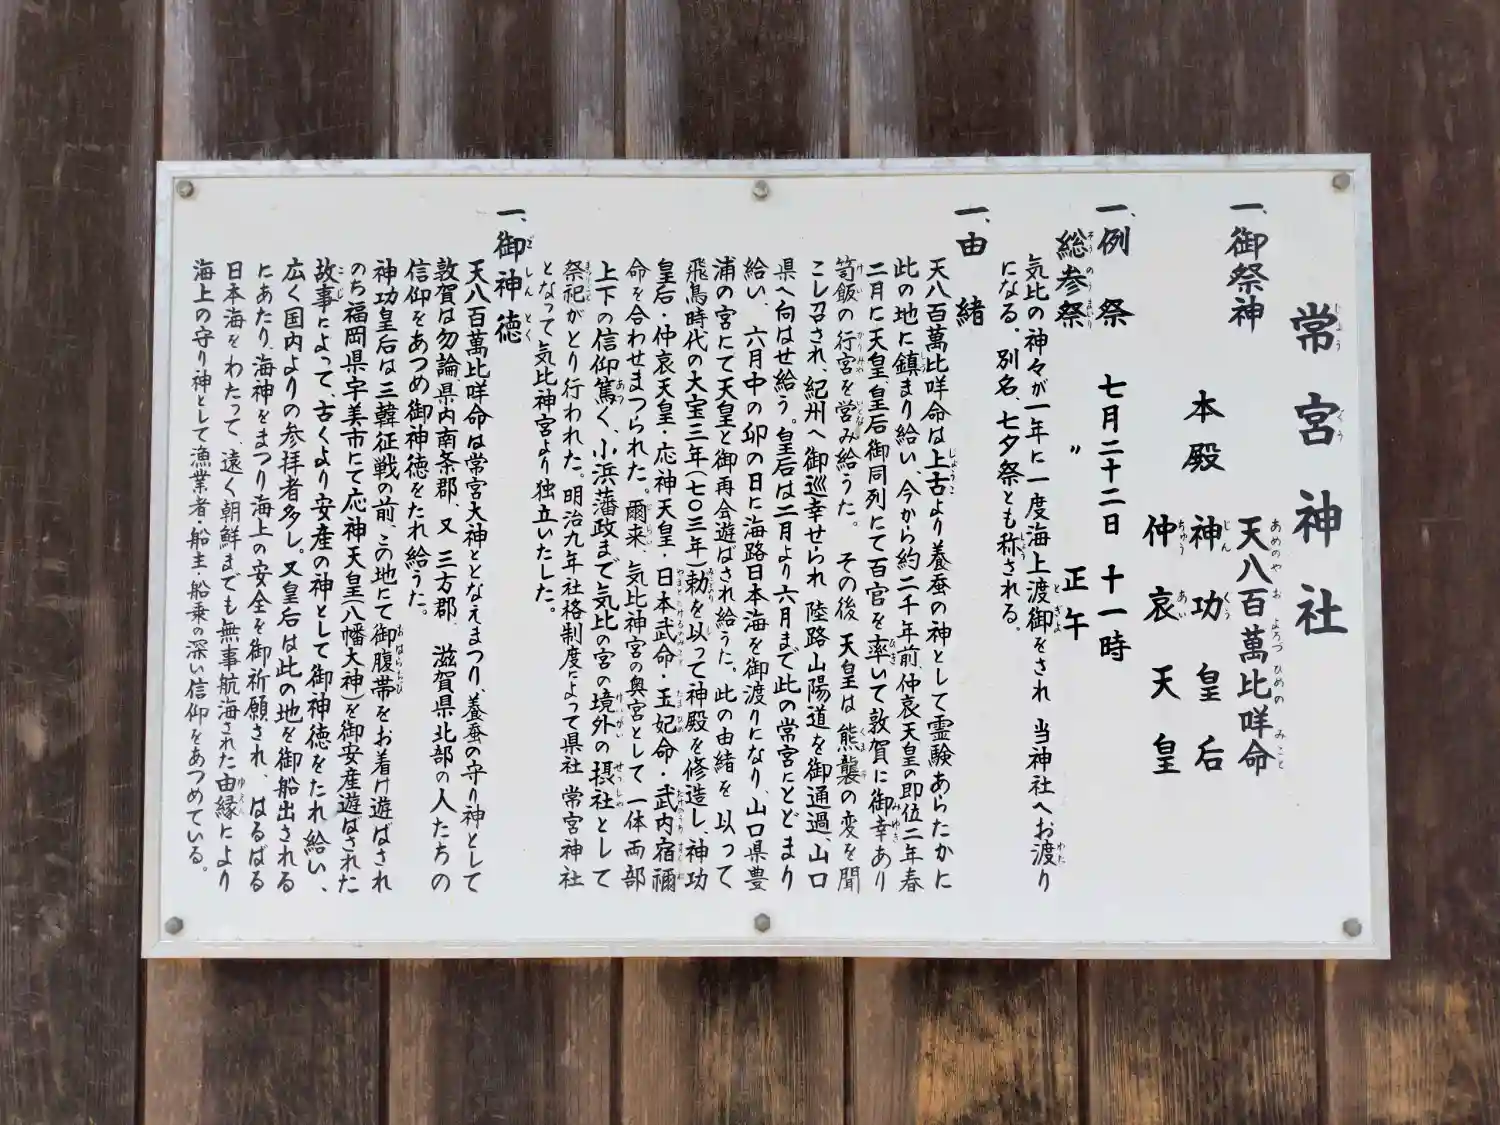 常宮神社
一、御祭神
天八百萬比咩命
本殿 神功皇后
仲哀天皇
一、例祭 七月二十二日 十一時
総参祭 〃 正午
気比の神々が一年に一度海上渡御をされ 当神社へお渡り
になる。別名、七夕祭とも称される。
一、由緒
天八百萬比咩命は上古より養蚕の神として霊験あらたかに
此の地に鎮まり給い、今から約二千年前、仲哀天皇の即位二年春
二月に天皇、皇后御同列にて百官を率いて敦賀に御幸あり
笥飯の行宮を営み給うた。 その後 天皇は 熊襲の変を聞
こし召され、紀州へ御巡幸せられ 陸路山陽道を御通過、山口
県へ向はせ給う。皇后は二月より六月まで此の常宮にとどまり
給い、 六月中の卯の日に海路日本海を御渡りになり、山口県豊
浦の宮にて天皇と御再会遊ばされ給うた。此の由緒を 以って
飛鳥時代の大宝三年(七〇三年)勅を以って神殿を修造し、神功
皇后・仲哀天皇・応神天皇・日本武命・玉妃命・武内宿禰
命を合わせまつられた。爾来、気比神宮の奥宮として 一体両部
上下の信仰篤く、小浜藩政まで気比の宮の境外の摂社として
祭祀がとり行われた。明治九年社格制度によって県社 常宮神社
となって気比神宮より独立いたした。
一、御神徳
天八百萬比咩命は常宮大神ととなえまつり、養蚕の守り神として
敦賀は勿論、県内南条郡、又 三方郡、 滋賀県北部の人たちの
信仰をあつめ御神徳をたれ給うた。
神功皇后は三韓征戦の前、この地にて御腹帯をお着け遊ばされ
のち福岡県宇美市にて応神天皇(八幡大神)を御安産遊ばされた
故事によって、古くより安産の神として御神徳をたれ給い、
広く国内よりの参拝者多し。又皇后は此の地を御船出される
にあたり、海神をまつり海上の安全を御祈願され、はるばる
日本海をわたって、遠く朝鮮までも無事航海された由縁により
海上の守り神として漁業者・船主・船乗の深い信仰をあつめている。